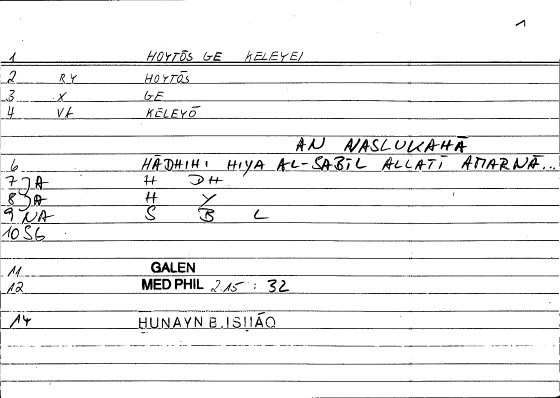 1
1 HOYTŌS GE KELEYEI
2 RY HOYTŌS
3 X GE
4 VK KELEYŌ
AN NASLUKAHĀ
6 HĀDHIHI HIYA AL-SABĪL ALLATĪ AMARNĀ...
7 A H DH
8 A H Y
9 NA S B L
10 SG
11 GALEN
12 MED PHIL 2.15 : 32
14 HUNAYN B. ISḤĀQ